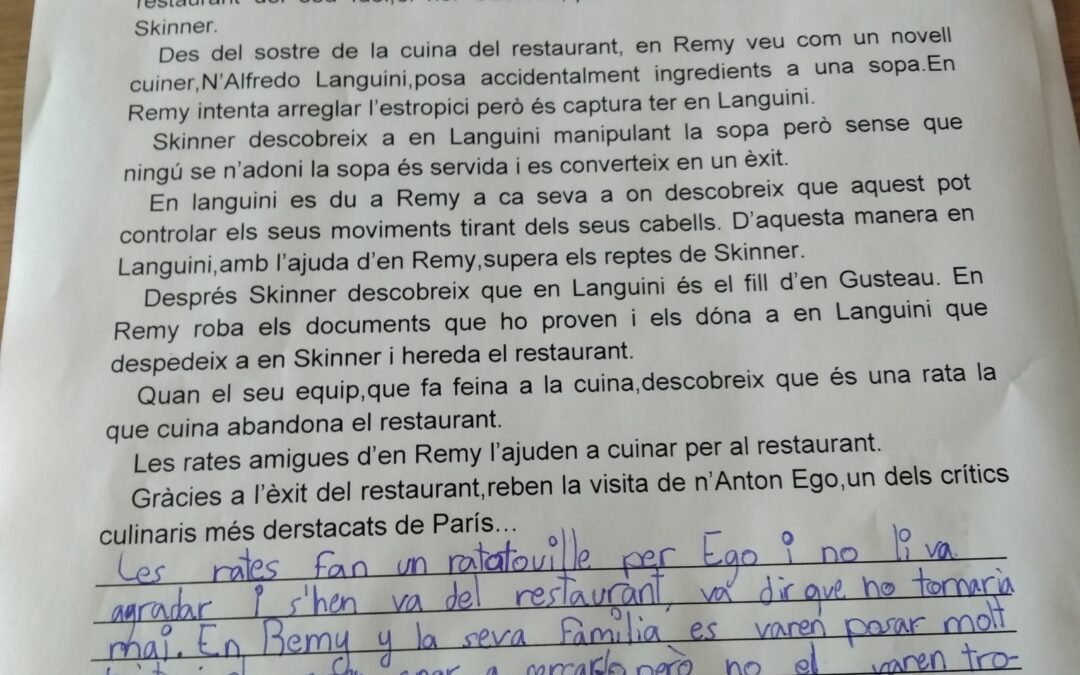 Skinner.
Des del sostre de la cuina del restaurant, en Remy veu com un novell
cuiner,N'Alfredo Languini,posa accidentalment ingredients a una sopa.En
Remy intenta arreglar l'estropici però és captura ter en Languini.
Skinner descobreix a en Languini manipulant la sopa però sense que
ningú se n'adoni la sopa és servida i es converteix en un èxit.
En languini es du a Remy a ca seva a on descobreix que aquest pot
controlar els seus moviments tirant dels seus cabells. D'aquesta manera en
Languini,amb l'ajuda d'en Remy,supera els reptes de Skinner.
Després Skinner descobreix que en Languini és el fill d'en Gusteau. En
Remy roba els documents que ho proven i els dóna a en Languini que
despedeix a en Skinner i hereda el restaurant.
Quan el seu equip,que fa feina a la cuina,descobreix que és una rata la
que cuina abandona el restaurant.
Les rates amigues d'en Remy l'ajuden a cuinar per al restaurant.
Gràcies a l'èxit del restaurant,reben la visita de n'Anton Ego,un dels crítics
culinaris més derstacats de París...
Les rates fan un ratatouille per Ego i no li va
agradar i s'hen va del restaurant, va dir que no tornaria
mai. En Remy y la seva família es varen posar molt
a però no el varen tro-